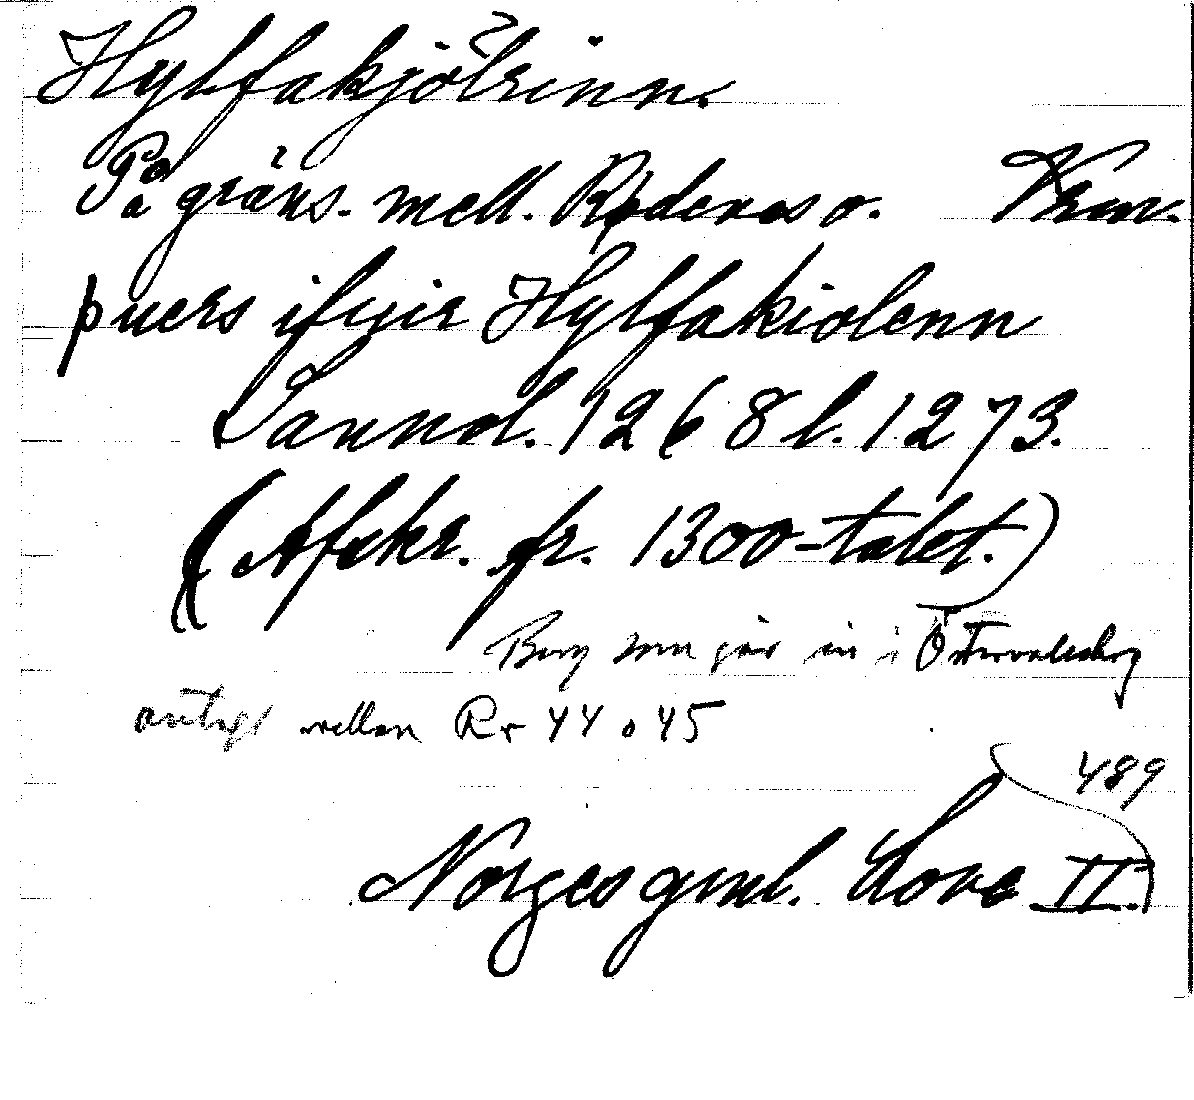 Hylfakjölrinn.
På gräns. mell. Rødenes o. Trem.
þuers ifyir Hylfakiolenn
Lannol. 1268 l. 1273.
(Afskr. fr. 1300-talet.)
Berg som går in i Östervallskog
antigt mellan Rr 44 o 45
489
Norges gml. Love II.